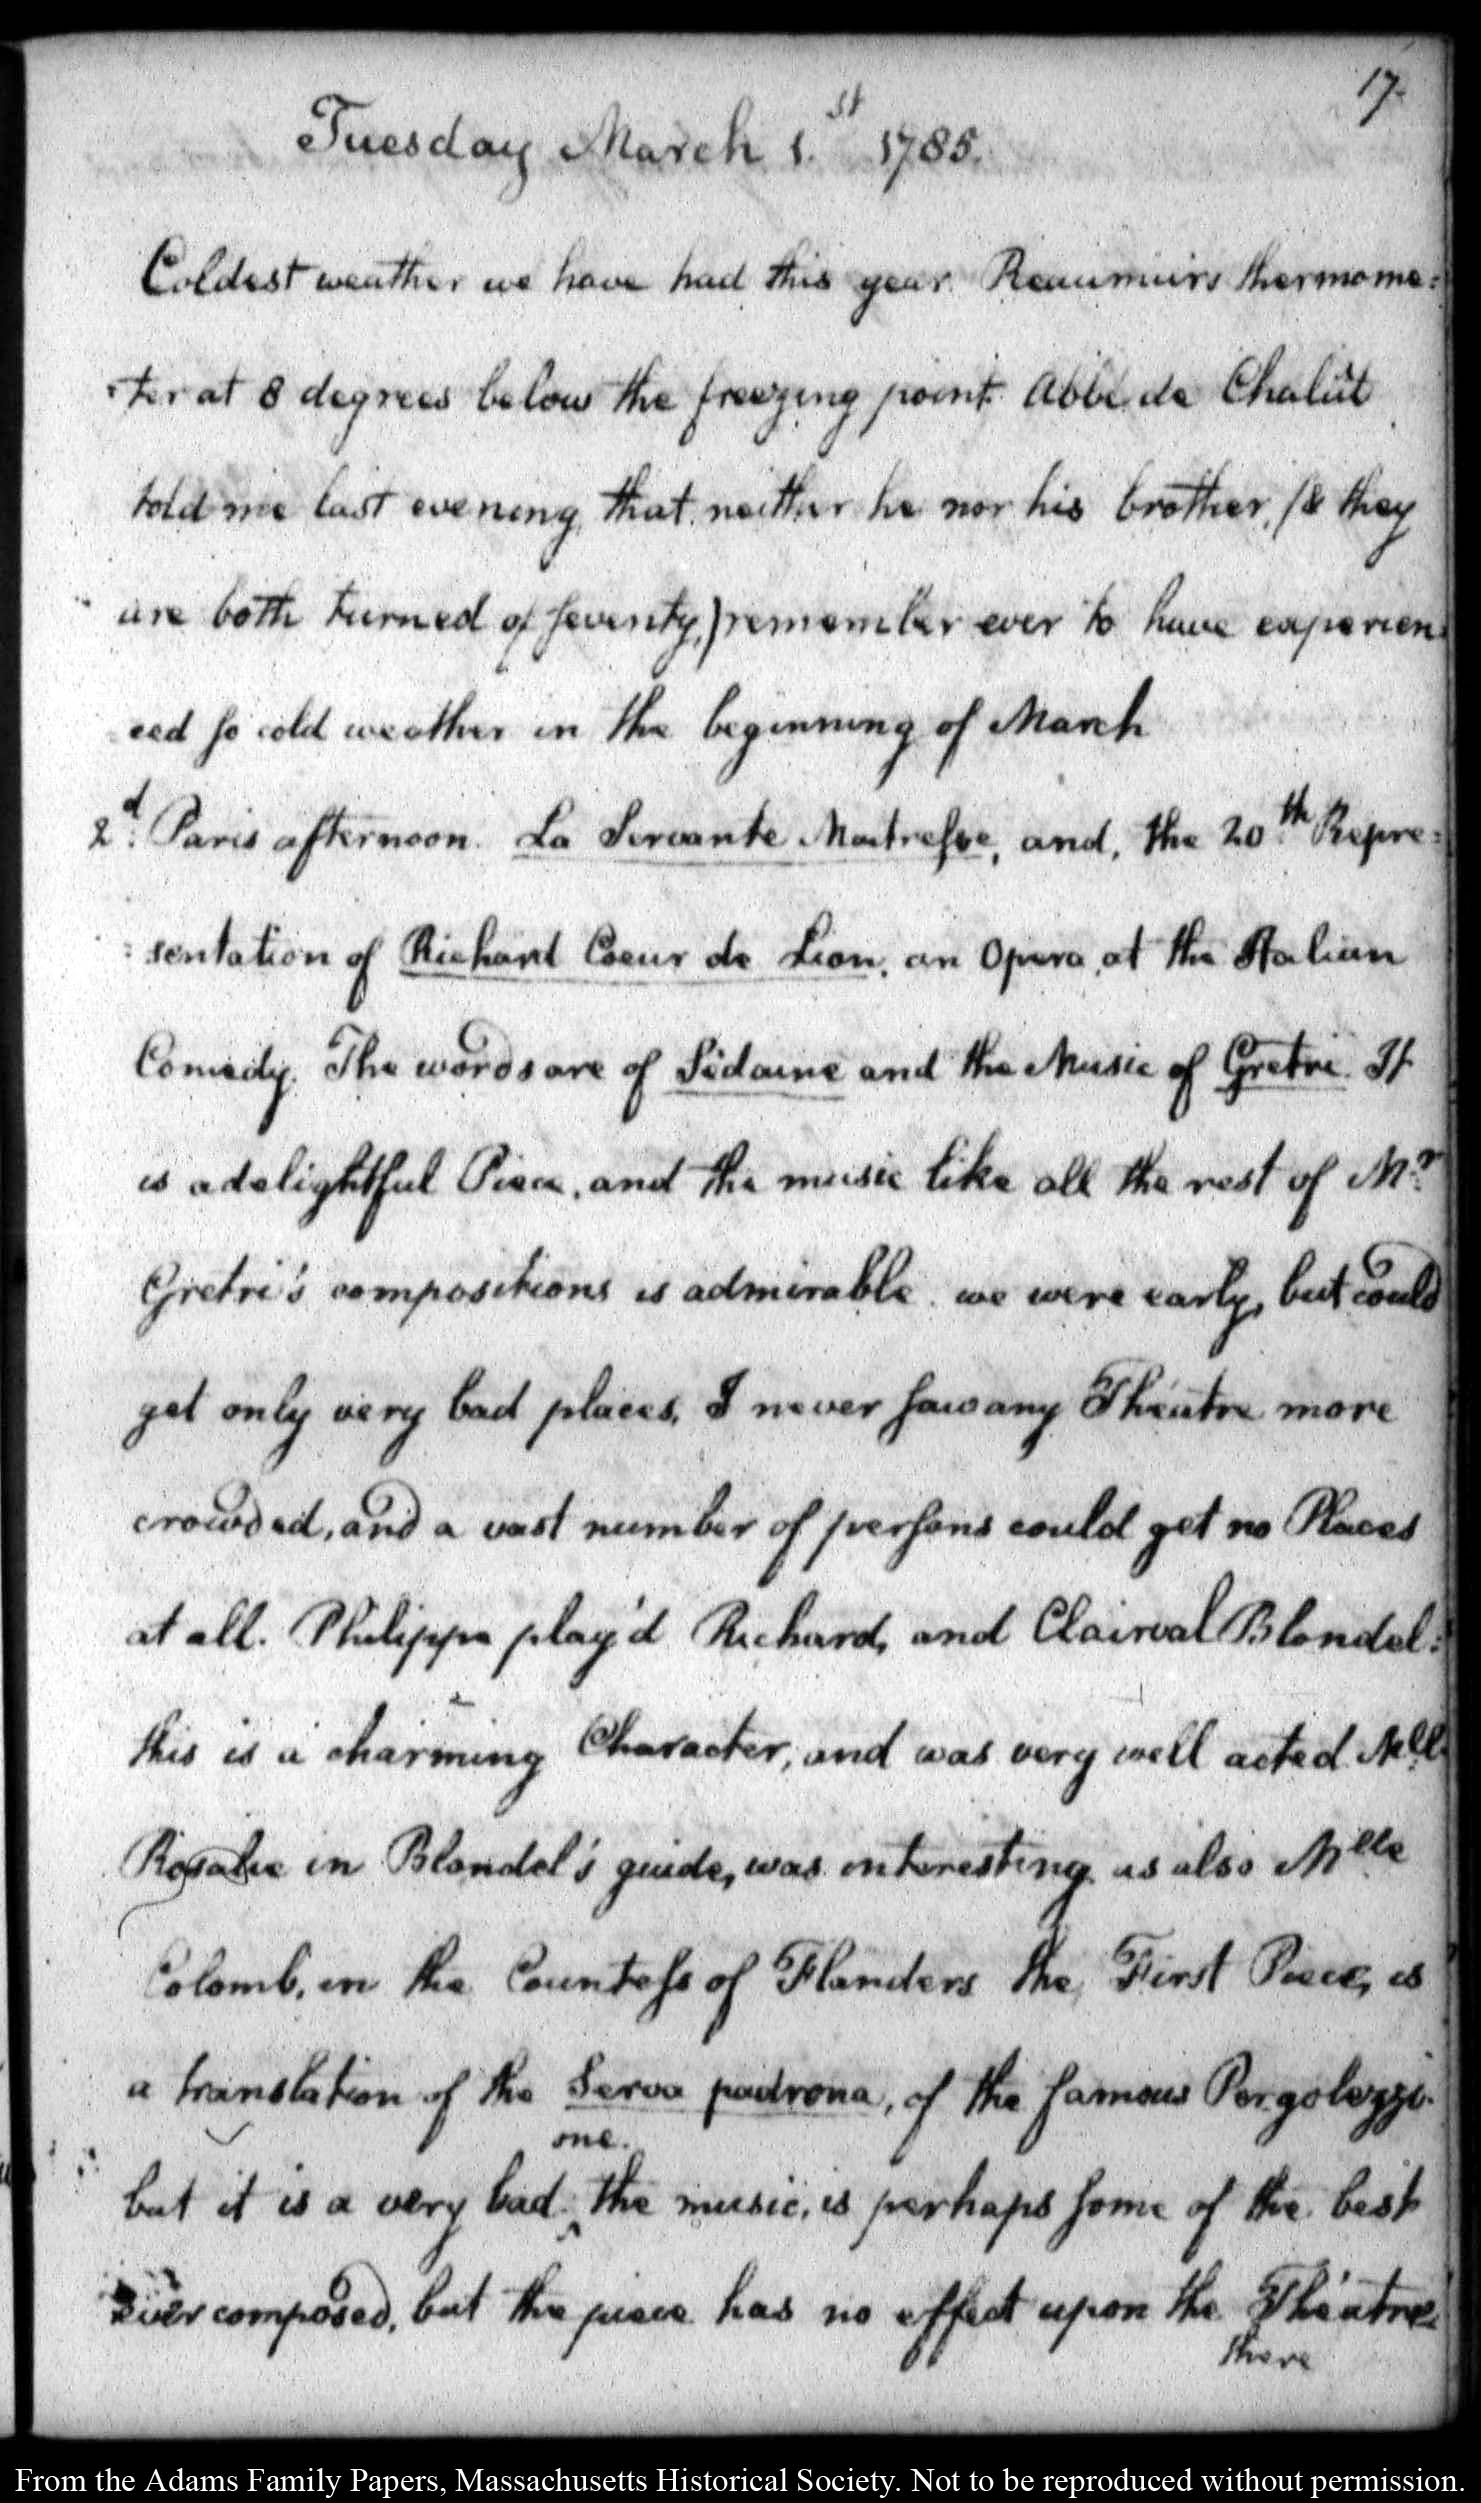 17.
Tuesday March 1.st 1785.
Coldest weather we have had this year. Reaumuirs thermome=
=ter at 8 degrees below the freezing point. Abbé de Chalût
told me last evening, that neither he nor his brother, (& they
are both turned of seventy,) remember ever to have experien=
ced so cold weather in the beginning of March
2d. Paris afternoon. La Servante Maitresse, and, the 20th. Repre=
=sentation of Richard Coeur de Lion, an Opera, at the Italian
Comedy. The words are of Sedaine and the Music of Gretri. It
is a delightful Piece, and the music like all the rest of Mr.
Gretri's compositions is admirable. we were early, but could
get only very bad places, I never saw any Théatre more
crowded, and a vast number of persons could get no Places
at all. Philippe play'd Richard, and Clairval Blondel:
this is a charming Character, and was very well acted. Mlle.
Rosalie in Blondel's guide, was interesting as also Mlle
Colomb, in the Countess of Flanders the First Piece, is
a translation of the Serva padrona, of the famous Pergolezzi.
but it is a very bad one. the music, is perhaps some of the best
ever composed, but the piece has no effect upon the Théatre.
there
From the Adams Family Papers, Massachusetts Historical Society. Not to be reproduced without permission.